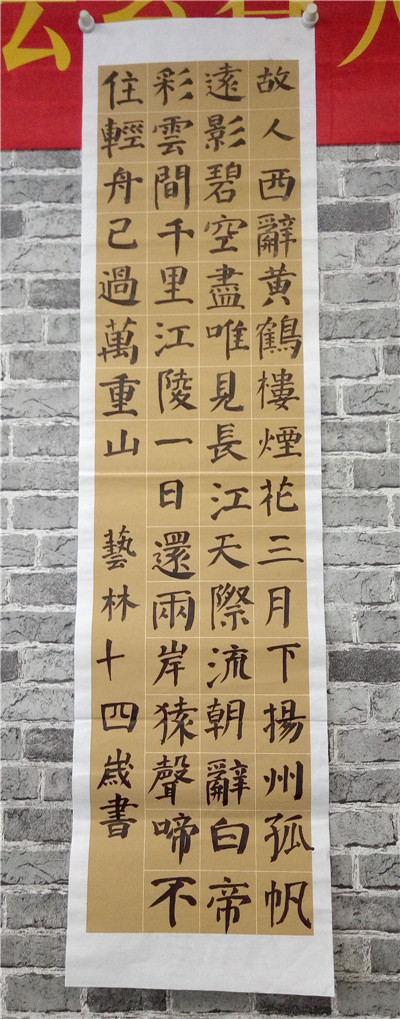 故人西辭黃鶴樓煙花三月下揚州孤帆
遠影碧空盡唯見長江天際流朝辭白帝
彩雲間千里江陵一日還兩岸猿聲啼不
住輕舟已過萬重山
藝林十四歲書